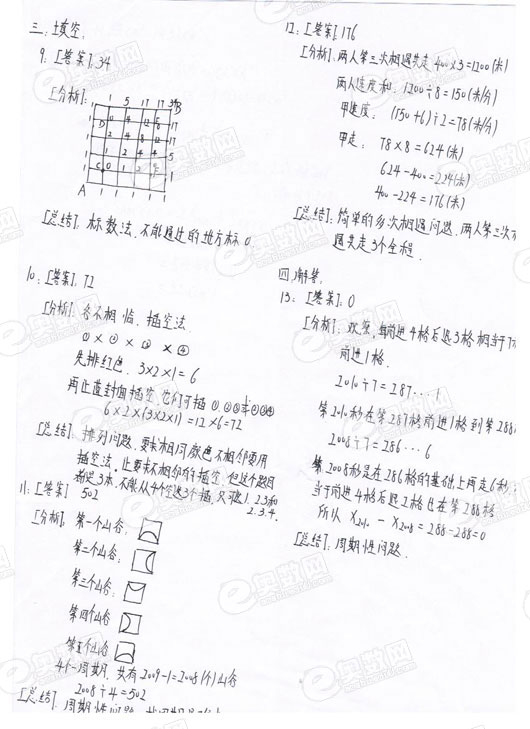 三、填空
9. [答案]: 34
[分析]:
1 5 17 17 34 B
1 D 0 4 12 17
1 4 8 17
1 2 4 4 5
1 C 0 1 1
A 1 1 1 1
[总结]: 标数法, 不能通过的地方标0.
10. [答案]: 72
[分析]: 各不相临, 插空法
① × ② × ③ × ④
先排红色, 3×2×1=6
6×2×(3×2×1)=12×6=72
[总结]: 排列问题, 要求相同颜色不相邻要用
插空法,
不能从4个空选3个插, 只可选1.2.3和
2.3.4.
11. [答案] 502
[分析]: 第一个山谷:
第二个山谷:
第三个山谷:
第四个山谷
第五个山谷
4个一周期, 共有2009-1=2008(个)山谷
2008÷4=502
[总结]: 周期性问题,
12. [答案]: 176
[分析]: 两人第三次相遇共走400×3=1200(米)
两人速度和: 1200÷8=150(米/分)
甲速度: (150+6)÷2=78(米/分)
甲走: 78×8=624(米)
624-400=224(米)
400-224=176(米)
[总结]: 简单的多次相遇问题, 两人第三次
遇共走3个全程.
四. 解答.
13: [答案]: 0
[分析]: 欢欢, 每前进4格后退3格相当于
前进1格.
2010÷7=287...1
第2010秒在第287格前进1格到第288
2008÷7=286...6
第2008秒是在286格的基础上再走6秒,
当于前进4格后退2格也在第288格
所以 X2010 - X2008 = 288-288=0
[总结]: 周期性问题.
e奥数网